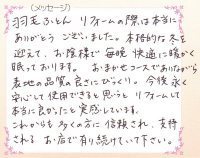 (メッセージ)
羽毛ふとん リフォームの際は本当に
ありがとう ございました。本格的な冬を
迎えて、お陰様で毎晩快適に暖かく
眠っております。おまかせコースでありながら
表地の品質の良さにびっくり。今後永く
安心して使用できると思うとリフォームして
本当に良かったと実感しています。
これからも多くの方に信頼され、支持
される お店で有り続けていて下さい。